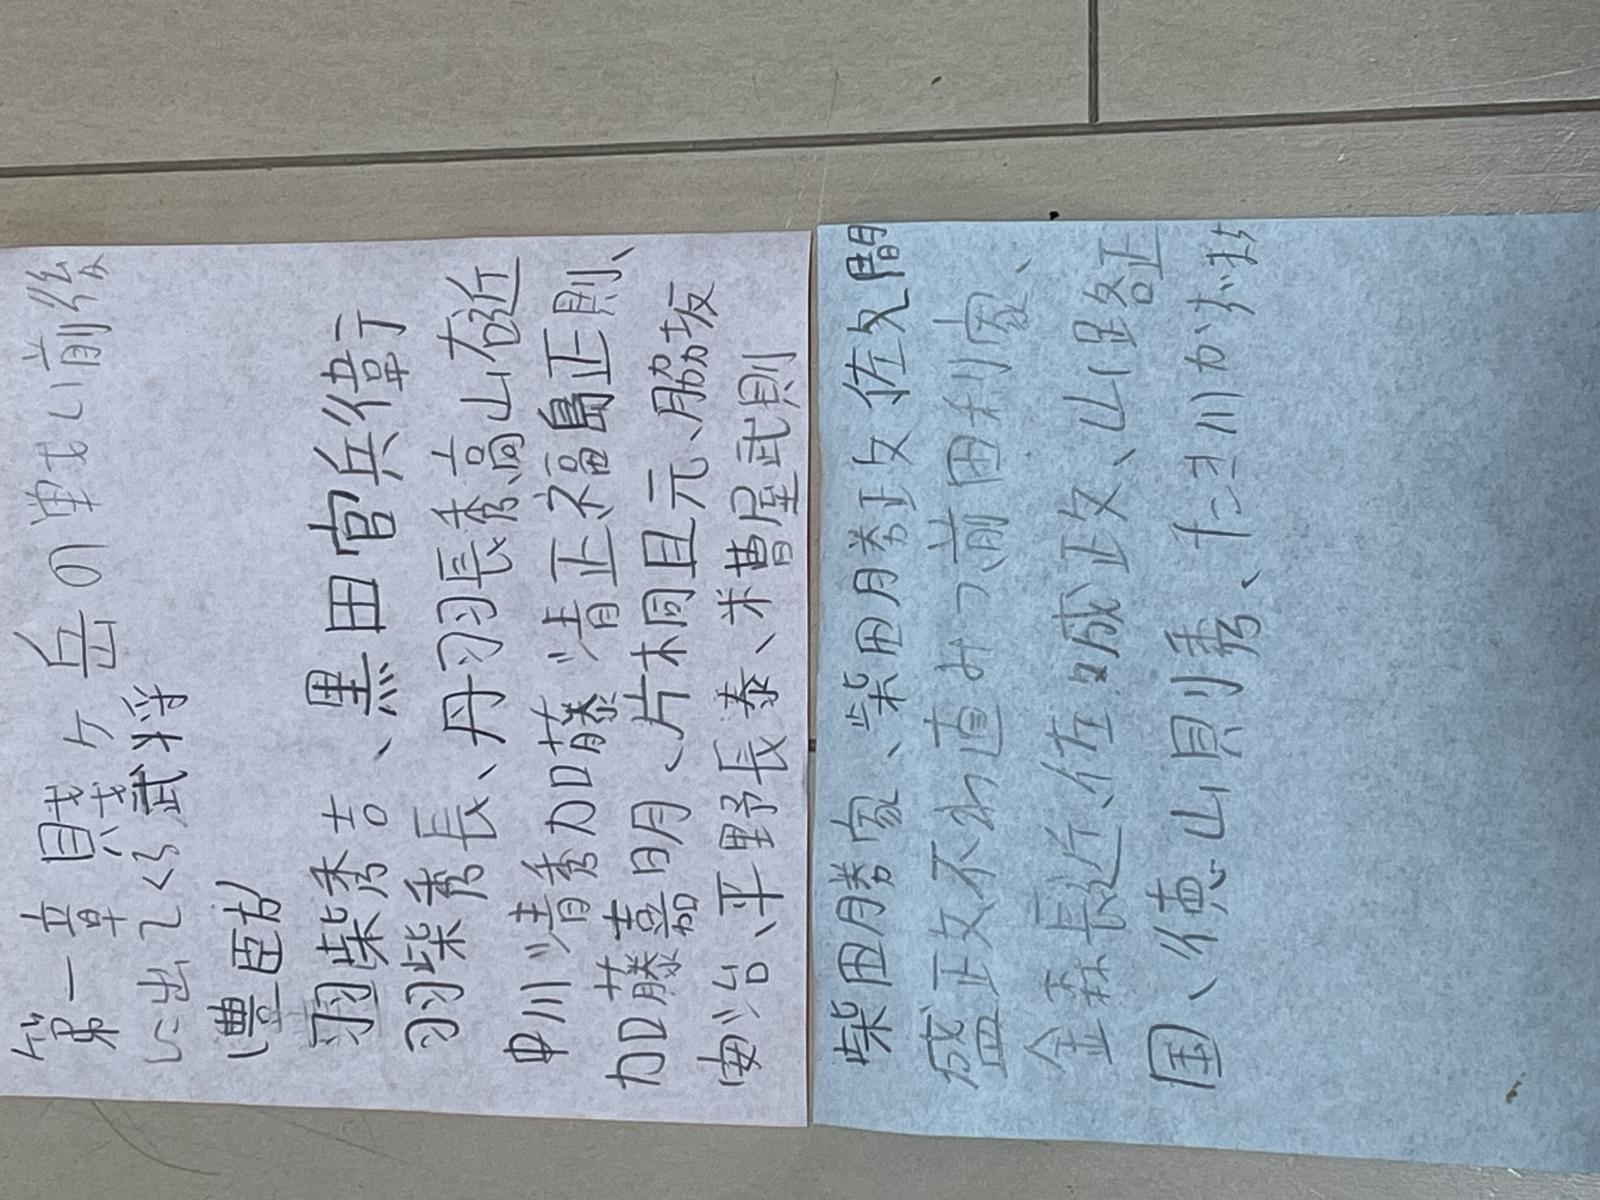 第一章賤ヶ岳の単戈い前後
に出てくる武将
(豊臣方)
羽柴秀吉、黒田官兵衛
羽柴秀長、丹羽長秀高山右近
中川清秀加藤清正福島正則、
加藤嘉明、片桐且元、脇坂
安治、平野長泰、糟屋武則
柴田勝家、柴田勝政佐久間
盛政不わ直みつ前田利家、
金森長近、佐々成政、山路正
国、徳山則秀、たき川かずます